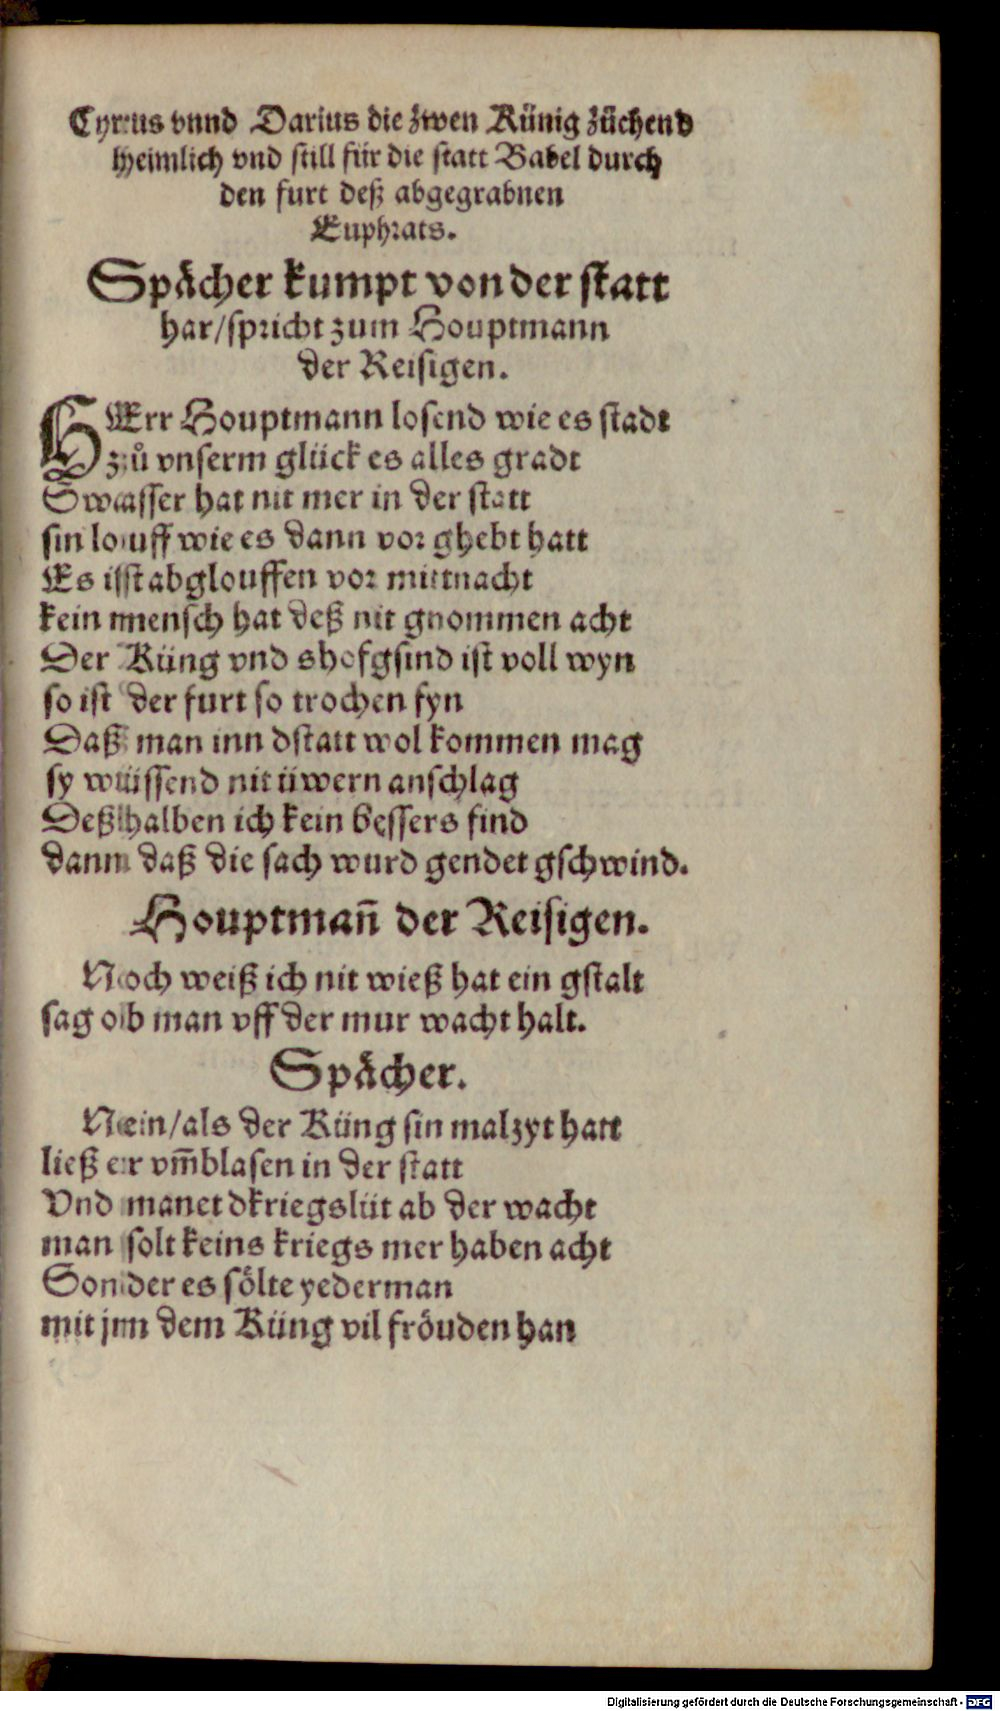 Cyrus vnnd Darius die zwen Künig züchend
heimlich vnd still für die statt Babel durch
den furt deß abgegrabnen
Euphrats.
Spächer kumpt von der statt
har/spricht zum Houptmann
der Reisigen.
HErr Houptmann losend wie es stadt
zuͦ vnserm glück es alles gradt
Swasser hat nit mer in der statt
sin louff wie es dann vor ghebt hatt
Es ist abglouffen vor mittnacht
kein mensch hat deß nit gnommen acht
Der Küng vnd shofgsind ist voll wyn
so ist der furt so trochen fyn
Daß man inn dstatt wol kommen mag
sy wüssend nit üwern anschlag
Deßhalben ich kein bessers find
dann daß die sach wurd gendet gschwind.
Houptman̄ der Reisigen.
Noch weiß ich nit wieß hat ein gstalt
sag ob man vff der mur wacht halt.
Spächer.
Nein/als der Küng sin malzyt hatt
ließ er vm̄blasen in der statt
Vnd manet dkriegslüt ab der wacht
man solt keins kriegs mer haben acht
Sonder es sölte yederman
mit jm dem Küng vil fröuden han
Digitalisierung gefördert durch die Deutsche Forschungsgemeinschaft - DFG